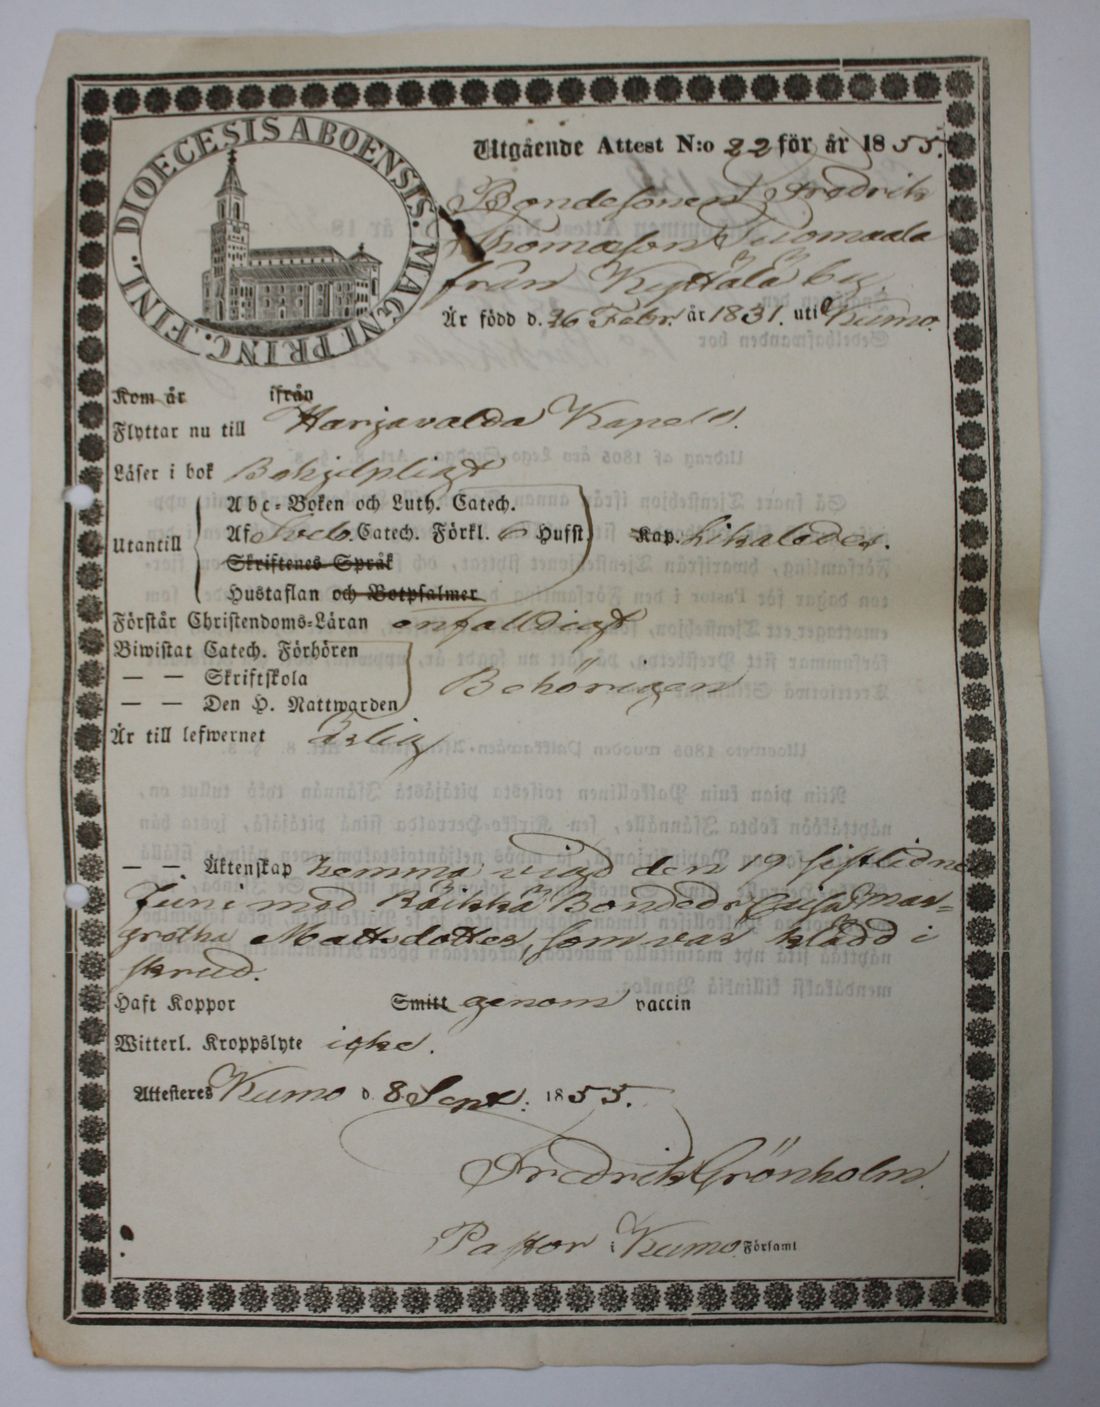 DIOECESIS ABOENSIS. MAGNI PRINC. FINL.
Utgående Attest N:o 22 för år 1855.
Bondesonen Fredrik
Thomasson Tuomaala
från Kyttälä by.
Är född d. 26 Febr. år 1831. uti Kumo.
Kom år ifrån
Flyttar nu till Harjavalda Kapell.
Läser i bok Behjelpligt
Utantill
Abc-Boken och Luth. Catech.
Af Sveb. Catech. Förkl. 6 Hufst. Kap. Likaledes.
Skriftenes Språk
Hustaflan och Botpsalmer
Förstår Christendoms-Läran enfalldigt
Biwistat Catech. Förhören
— — Skriftskola Behörigen
— — Den H. Nattwarden
Är till lefwernet Ärlig
— — Äktenskap hemma vigd den 19 sistlidne
Juni med Bonded. Caisa Mar-
gretha Mattsdotter, som var klädd i
skrud.
Haft Koppor Smitt genom vaccin
Witterl. Kroppslyte icke.
Attesteres Kumo d. 8 Sept. 1855.
Fredrik Grönholm.
Pastor i Kumo Församl